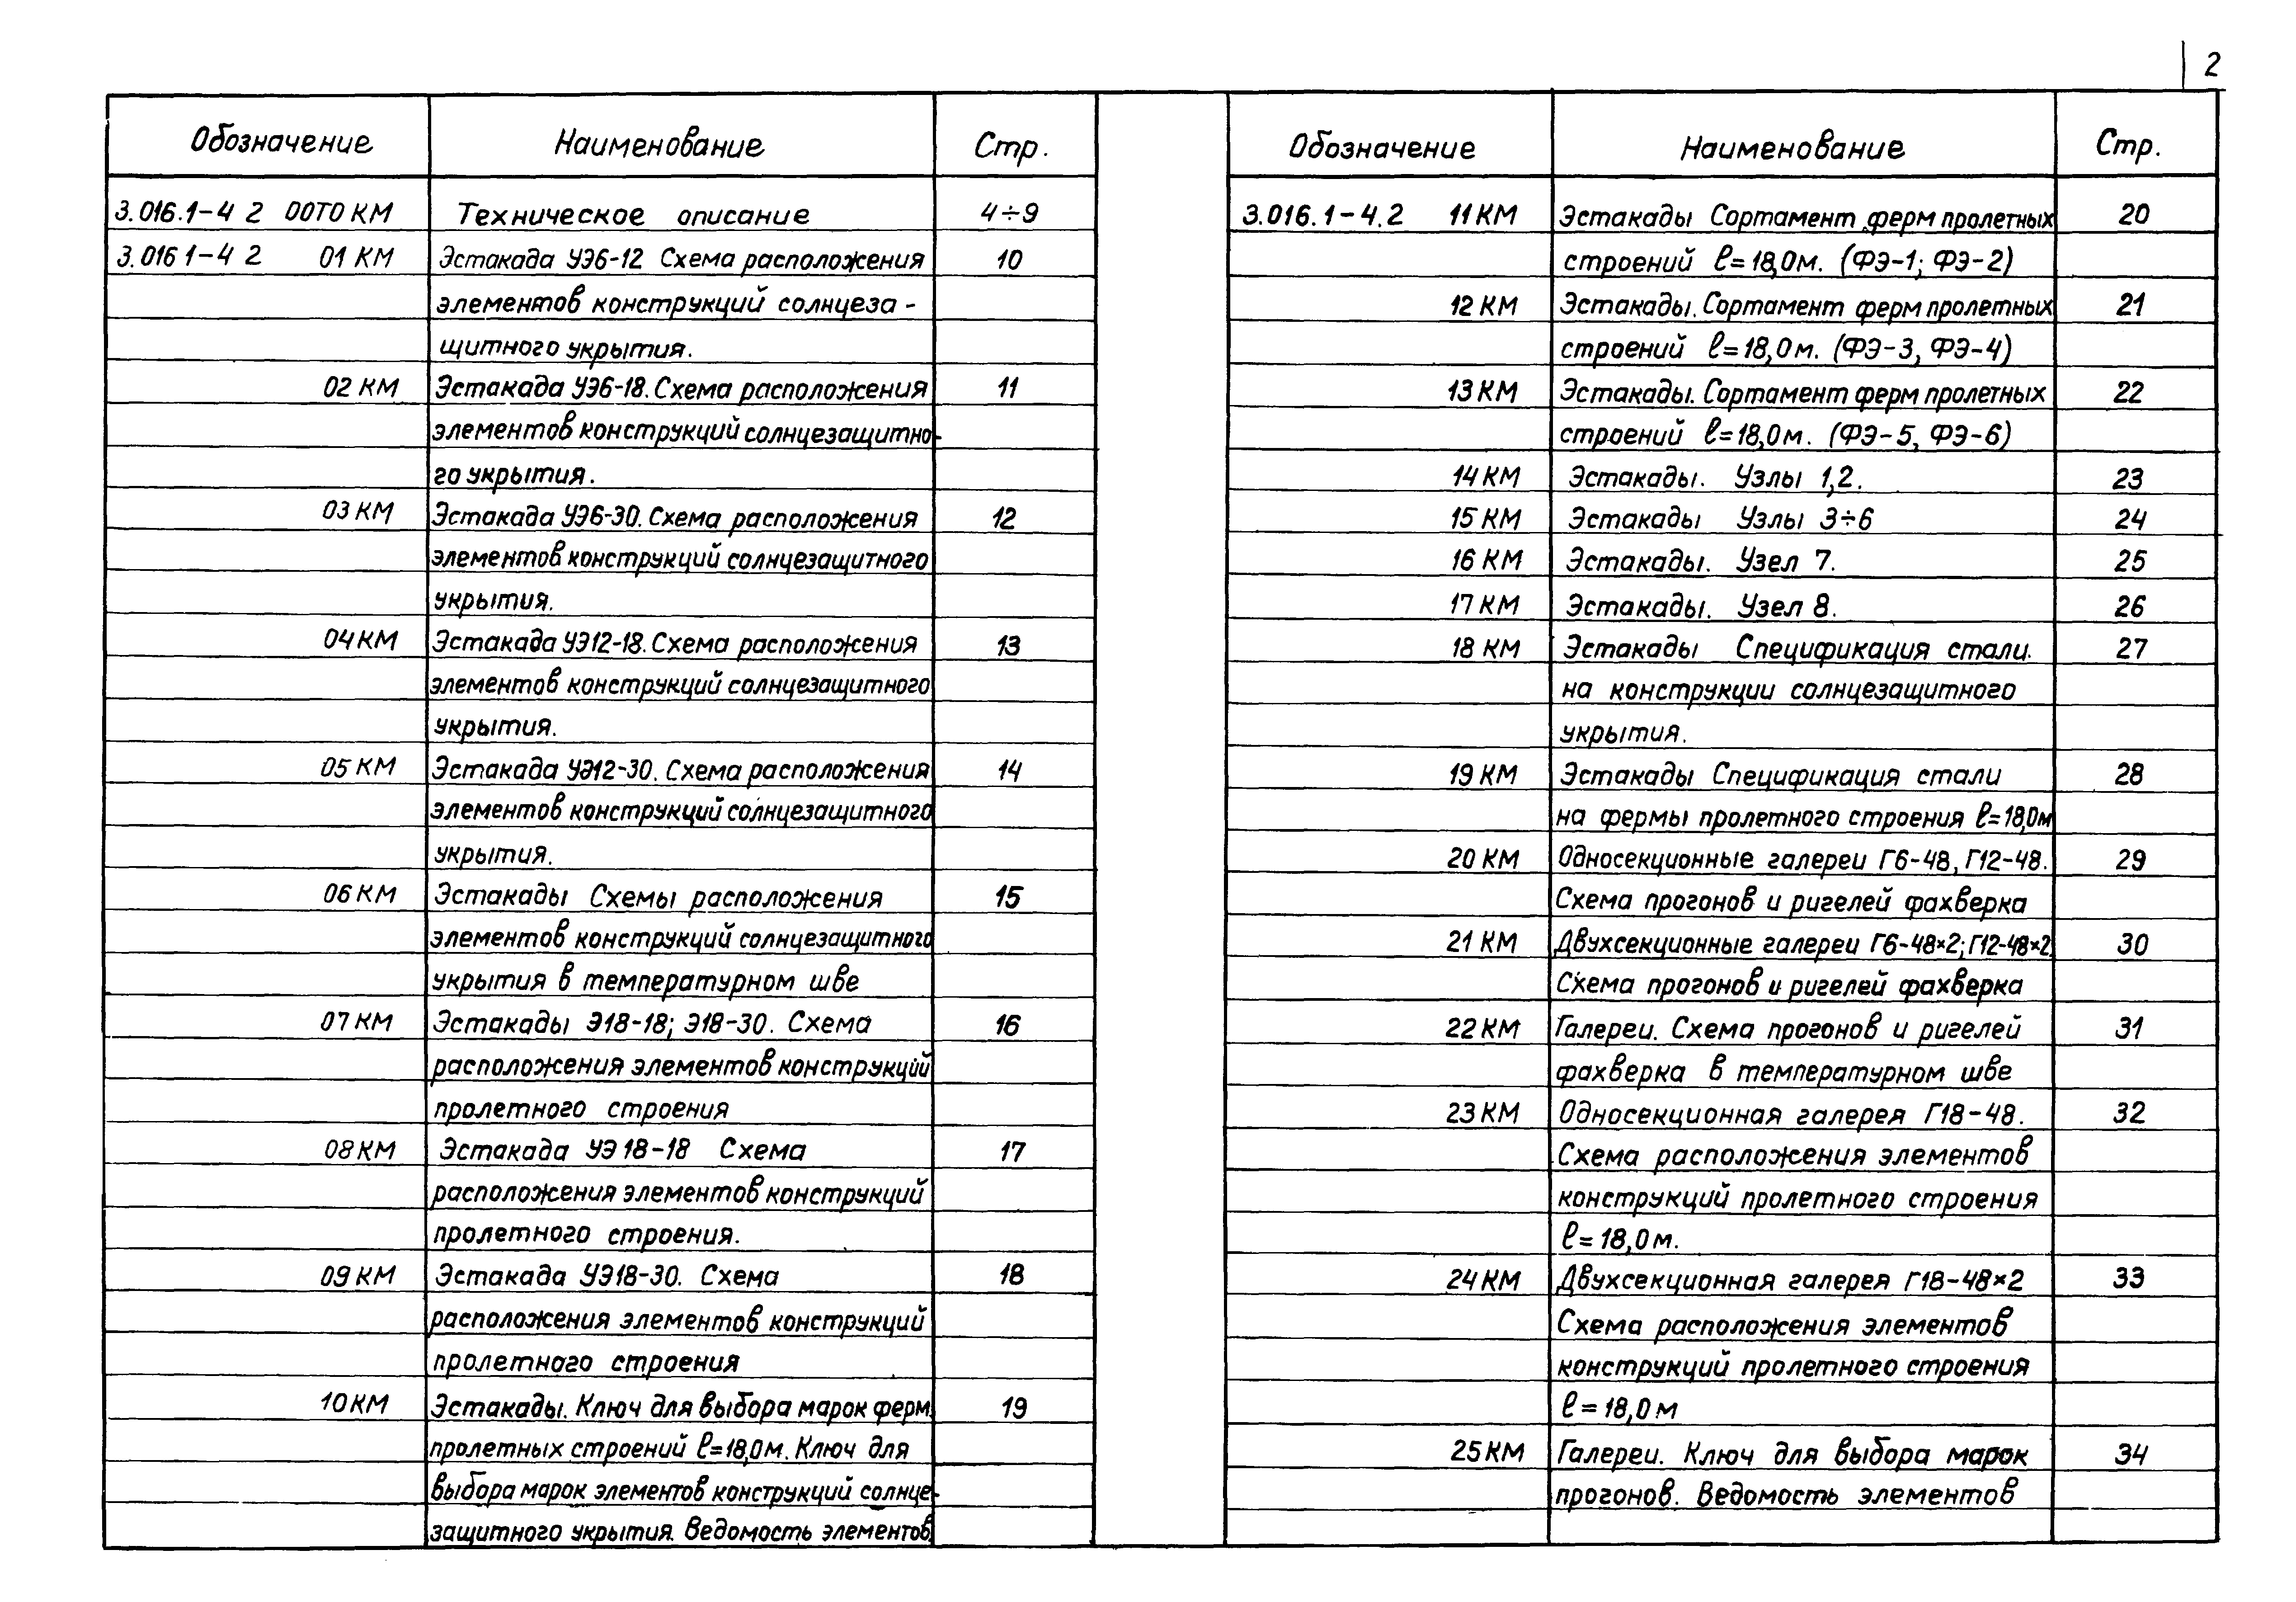 2
Обозначение Наименование Стр.
3.016.1-4 2 00ТО КМ Техническое описание 4÷9
3.016 1-4 2 01 КМ Эстакада УЭ6-12 Схема расположения 10
элементов конструкций солнцеза-
щитного укрытия.
02 КМ Эстакада УЭ6-18. Схема расположения 11
элементов конструкций солнцезащитно-
го укрытия.
03 КМ Эстакада УЭ6-30. Схема расположения 12
элементов конструкций солнцезащитного
укрытия.
04 КМ Эстакада УЭ12-18. Схема расположения 13
элементов конструкций солнцезащитного
укрытия.
05 КМ Эстакада УЭ12-30. Схема расположения 14
элементов конструкций солнцезащитного
укрытия.
06 КМ Эстакады Схемы расположения 15
элементов конструкций солнцезащитного
укрытия в температурном шве
07 КМ Эстакады Э18-18; Э18-30. Схема 16
расположения элементов конструкций
пролетного строения
08 КМ Эстакада УЭ 18-18 Схема 17
расположения элементов конструкций
пролетного строения.
09 КМ Эстакада УЭ18-30. Схема 18
расположения элементов конструкций
пролетного строения
10 КМ Эстакады. Ключ для выбора марок ферм 19
пролетных строений ℓ=18,0м. Ключ для
выбора марок элементов конструкций солнце-
защитного укрытия. Ведомость элементов.
Обозначение Наименование Стр.
3.016.1-4.2 11 КМ Эстакады Сортамент ферм пролетных 20
строений ℓ=18,0м. (ФЭ-1; ФЭ-2)
12 КМ Эстакады. Сортамент ферм пролетных 21
строений ℓ=18,0м. (ФЭ-3, ФЭ-4)
13 КМ Эстакады. Сортамент ферм пролетных 22
строений ℓ=18,0м. (ФЭ-5, ФЭ-6)
14 КМ Эстакады. Узлы 1,2. 23
15 КМ Эстакады Узлы 3÷6 24
16 КМ Эстакады. Узел 7. 25
17 КМ Эстакады. Узел 8. 26
18 КМ Эстакады Спецификация стали. 27
на конструкции солнцезащитного
укрытия.
19 КМ Эстакады Спецификация стали 28
на фермы пролетного строения ℓ=18,0м
20 КМ Односекционные галереи Г6-48, Г12-48. 29
Схема прогонов и ригелей фахверка
21 КМ Двухсекционные галереи Г6-48×2; Г12-48×2. 30
Схема прогонов и ригелей фахверка
22 КМ Галереи. Схема прогонов и ригелей 31
фахверка в температурном шве
23 КМ Односекционная галерея Г18-48. 32
Схема расположения элементов
конструкций пролетного строения
ℓ=18,0м.
24 КМ Двухсекционная галерея Г18-48×2 33
Схема расположения элементов
конструкций пролетного строения
ℓ=18,0м
25 КМ Галереи. Ключ для выбора марок 34
прогонов. Ведомость элементов